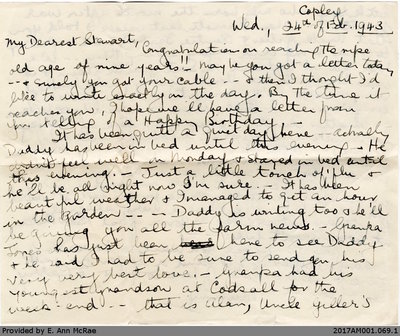 Copley
Wed., 24th of Feb. 1943
My Dearest Stewart,
Congratulations on reaching the ripe
old age of nine years!! Maybe you got a letter today
-- surely you got your cable -- & then I thought I'd
like to write exactly on the day. By the time it
reaches you I hope we'll have a letter from
you telling of a Happy Birthday --
It has been quite a quiet day here -- actually
Daddy has been in bed until this evening. He
didn't feel well on Monday & stayed in bed until
this evening. -- Just a little touch of 'flu &
he'll be all right now I'm sure. -- It has been
beautiful weather & I managed to get an hour
in the garden -- -- Daddy is writing too & he'll
be giving you all the farm news. -- Granpa
Jones has just been here to see Daddy
& he said I had to be sure to send you his
very very best love. -- Granpa had his
youngest grandson at Codsall for the
week-end -- that is Alan, Uncle
Provided by E. Ann McRae
2017AM001.069.1